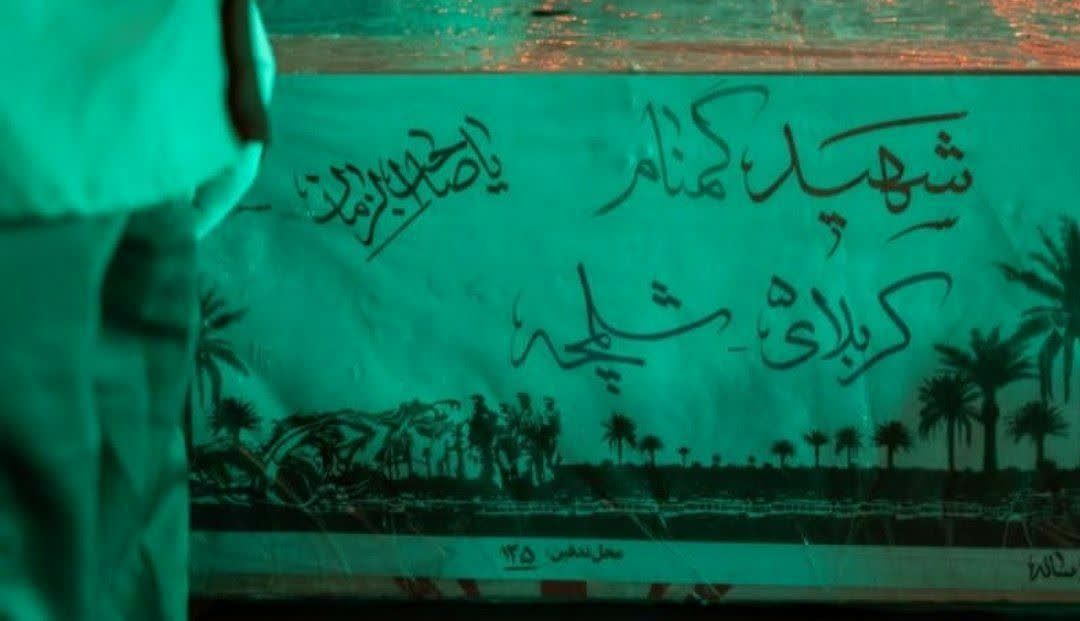 شهید گمنام
یا صاحب الزمان
کربلای ۵ - شلمچه
محل تدفین: ۱۳۵